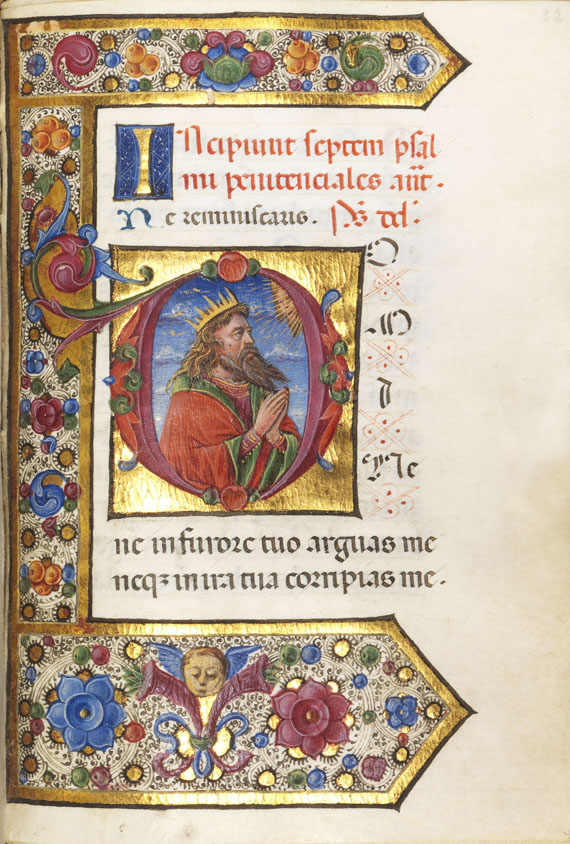 INcipiunt septem psal
mi penitenciales añt.
Ne reminiscaris. Ps dd.
DO
M
I
Ne
ne in furore tuo arguas me
neqȝ in ira tua corripias me.